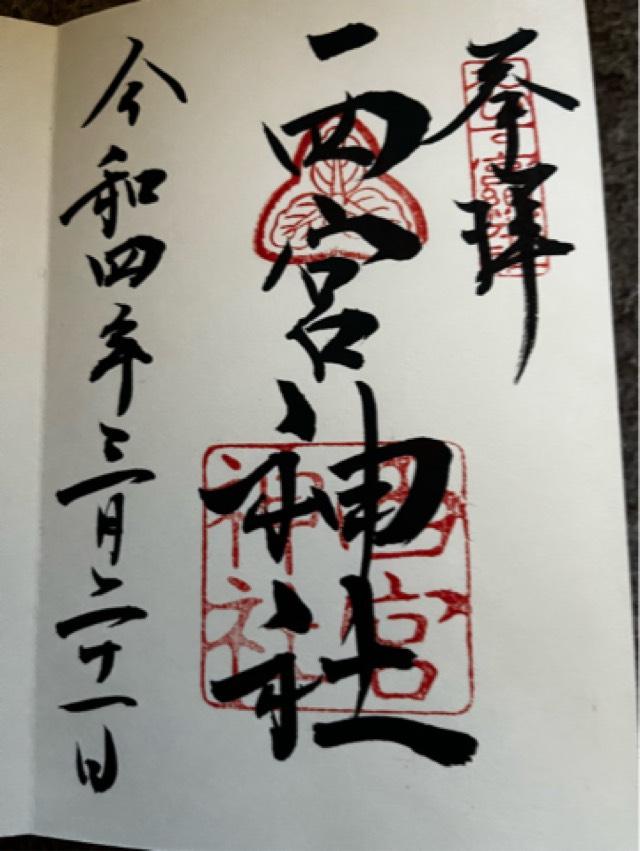 奉拝
西宮神社
西宮
神社
令和四年三月二十一日